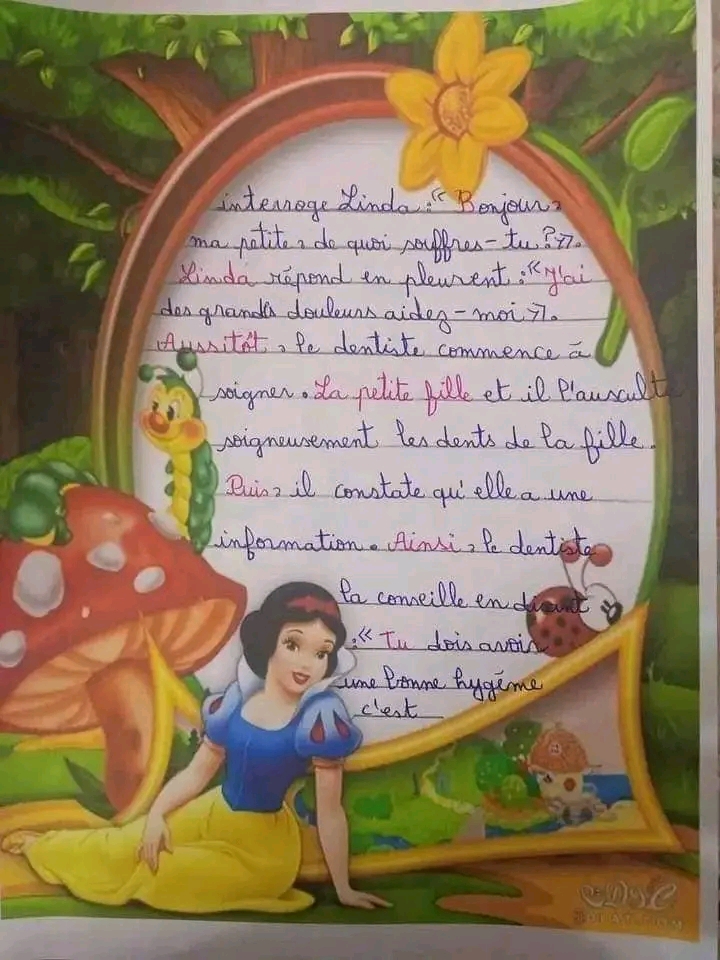 interroge Linda : « Bonjour,
ma petite, de quoi souffres-tu ? ».
Linda répond en pleurent : « J'ai
des grands douleurs aidez-moi ».
Aussitôt, le dentiste commence à
soigner. La petite fille et il l'ausculte
soigneusement les dents de la fille.
Puis, il constate qu'elle a une
information. Ainsi, le dentiste
la conseille en disant
: « Tu dois avoir
une bonne hygéme
c'est